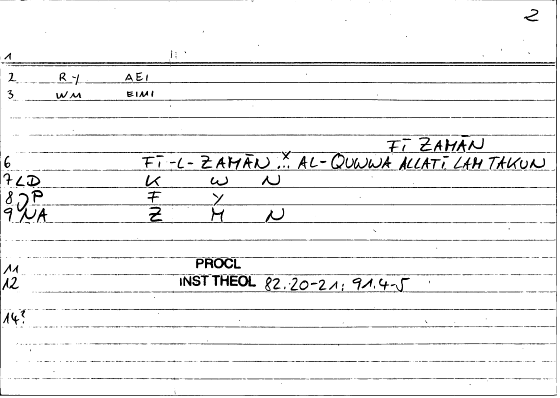 2
1
2 RY AEI
3 WM EIMI
FĪ ZAMĀN
6 FĪ-L-ZAMĀN ...× AL-QUWWA ALLATĪ LAM TAKUN
7 LD K W N
8 JP F Y
9 NA Z M N
11 PROCL
12 INST THEOL 82.20-21; 91.4-5
14?